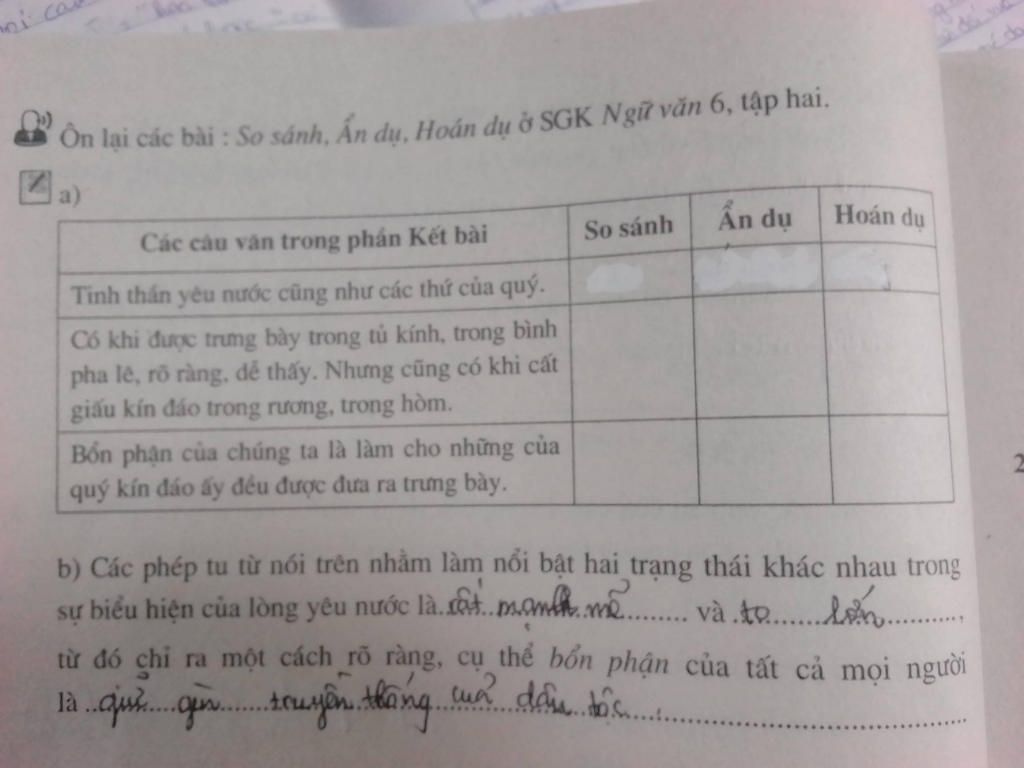 Ôn lại các bài : So sánh, Ẩn dụ, Hoán dụ ở SGK Ngữ văn 6, tập hai.
a)
Các câu văn trong phần Kết bài So sánh Ẩn dụ Hoán dụ
Tinh thần yêu nước cũng như các thứ của quý.
Có khi được trưng bày trong tủ kính, trong bình
pha lê, rõ ràng, dễ thấy. Nhưng cũng có khi cất
giấu kín đáo trong rương, trong hòm.
Bổn phận của chúng ta là làm cho những của
quý kín đáo ấy đều được đưa ra trưng bày.
b) Các phép tu từ nói trên nhằm làm nổi bật hai trạng thái khác nhau trong
sự biểu hiện của lòng yêu nước là..rất..mạnh..mẽ.......... và .to.......lớn..........,
từ đó chỉ ra một cách rõ ràng, cụ thể bổn phận của tất cả mọi người
là ..giữ....gìn......truyền.thống.của..dân..tộc....................................
2